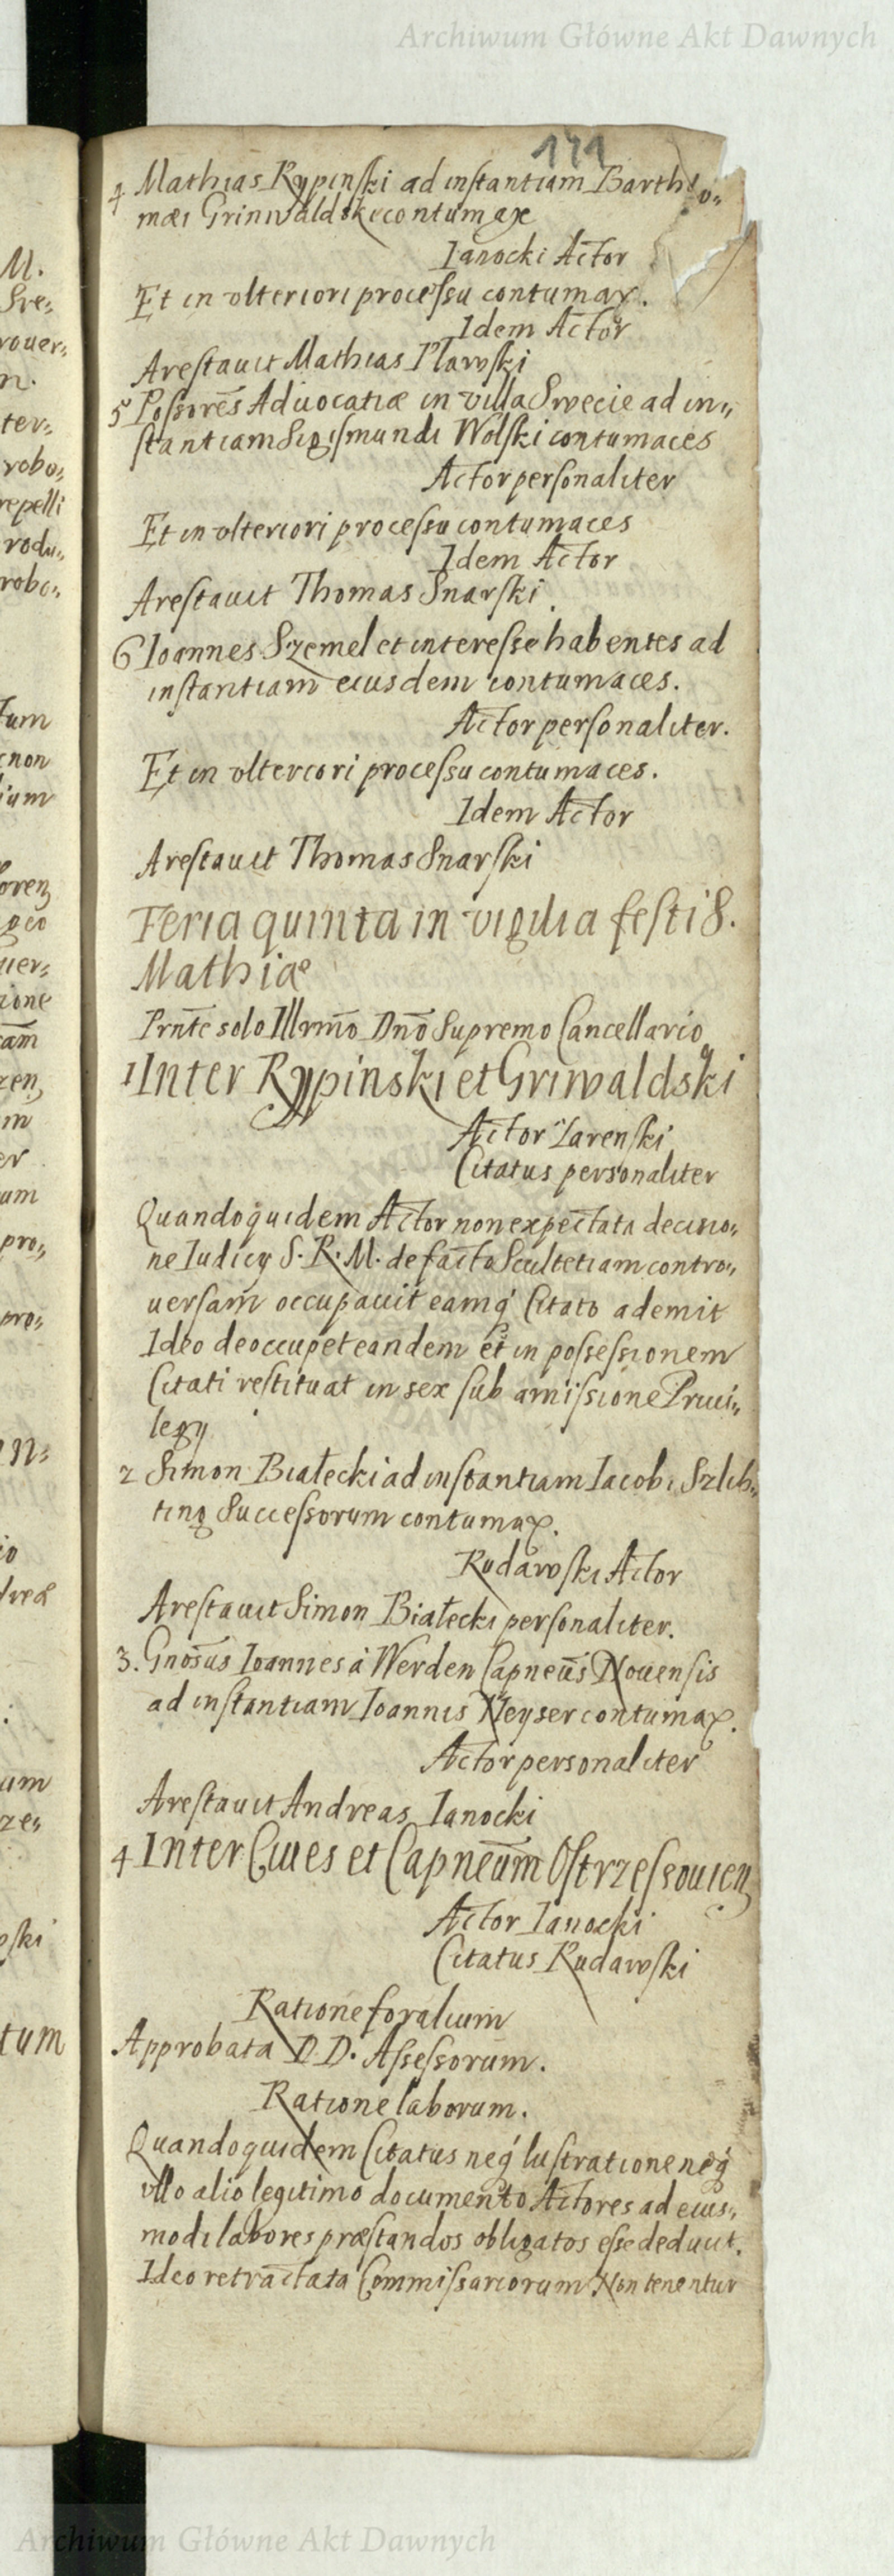 Archiwum Główne Akt Dawnych
171
M.
Sre:
rouer:
n.
ter:
robo:
repelli
rodu:
robo:
tum
cnon
ium
oren
geo
uer:
zione
cam
zen
m
er
um
pro:
pro:
n:
io
dreæ
:
um
ze:
ski
tum
4 Mathias Rypinski ad instantiam Bartholo:
mæi Grinwaldski contumax
Ianocki Actor
Et in vlteriori processu contumax.
Idem Actor
Arestauit Mathias Plawski
5 Possores Aduocatiæ in villa Swecie ad in:
stantiam Sigismundi Wolski contumaces
Actor personaliter
Et in vlteriori processu contumaces
Idem Actor
Arestauit Thomas Snarski.
6 Ioannes Szemel et interesse habentes ad
instantiam eiusdem contumaces.
Actor personaliter.
Et in vlteriori processu contumaces.
Idem Actor
Arestauit Thomas Snarski
Feria quinta in vigilia festi S.
Mathiæ
Prnte solo Illrmo Dno Supremo Cancellario
1 Inter Rypinski et Griwaldski
Actor Zarenski
Citatus personaliter
Quandoquidem Actor non expectata decisio:
ne Iudicy S. R. M. de facto Scultetiam contro:
uersam occupauit eamq Citato ademit
Ideo deoccupet eandem et in possessionem
Citati restituat in sex sub amissione Priui:
legy
2 Simon Białecki ad instantiam Iacobi Szlich:
ting Successorum contumax.
Rudawski Actor
Arestauit Simon Białecki personaliter.
3. Gnosus Ioannes à Werden Capneus Nouensis
ad instantiam Ioannis Neyser contumax.
Actor personaliter
Arestauit Andreas Ianocki
4 Inter Ciues et Capneum Ostrzessouien
Actor Ianocki
Citatus Rudawski
Ratione foralium
Approbata D D. Assessorum.
Ratione laborum.
Quandoquidem Citatus neq lustratione neq
vllo alio legitimo documento Actores ad eius:
modi labores præstandos obligatos esse deduxit.
Ideo retractata Commissariorum Non tenentur
Archiwum Główne Akt Dawnych